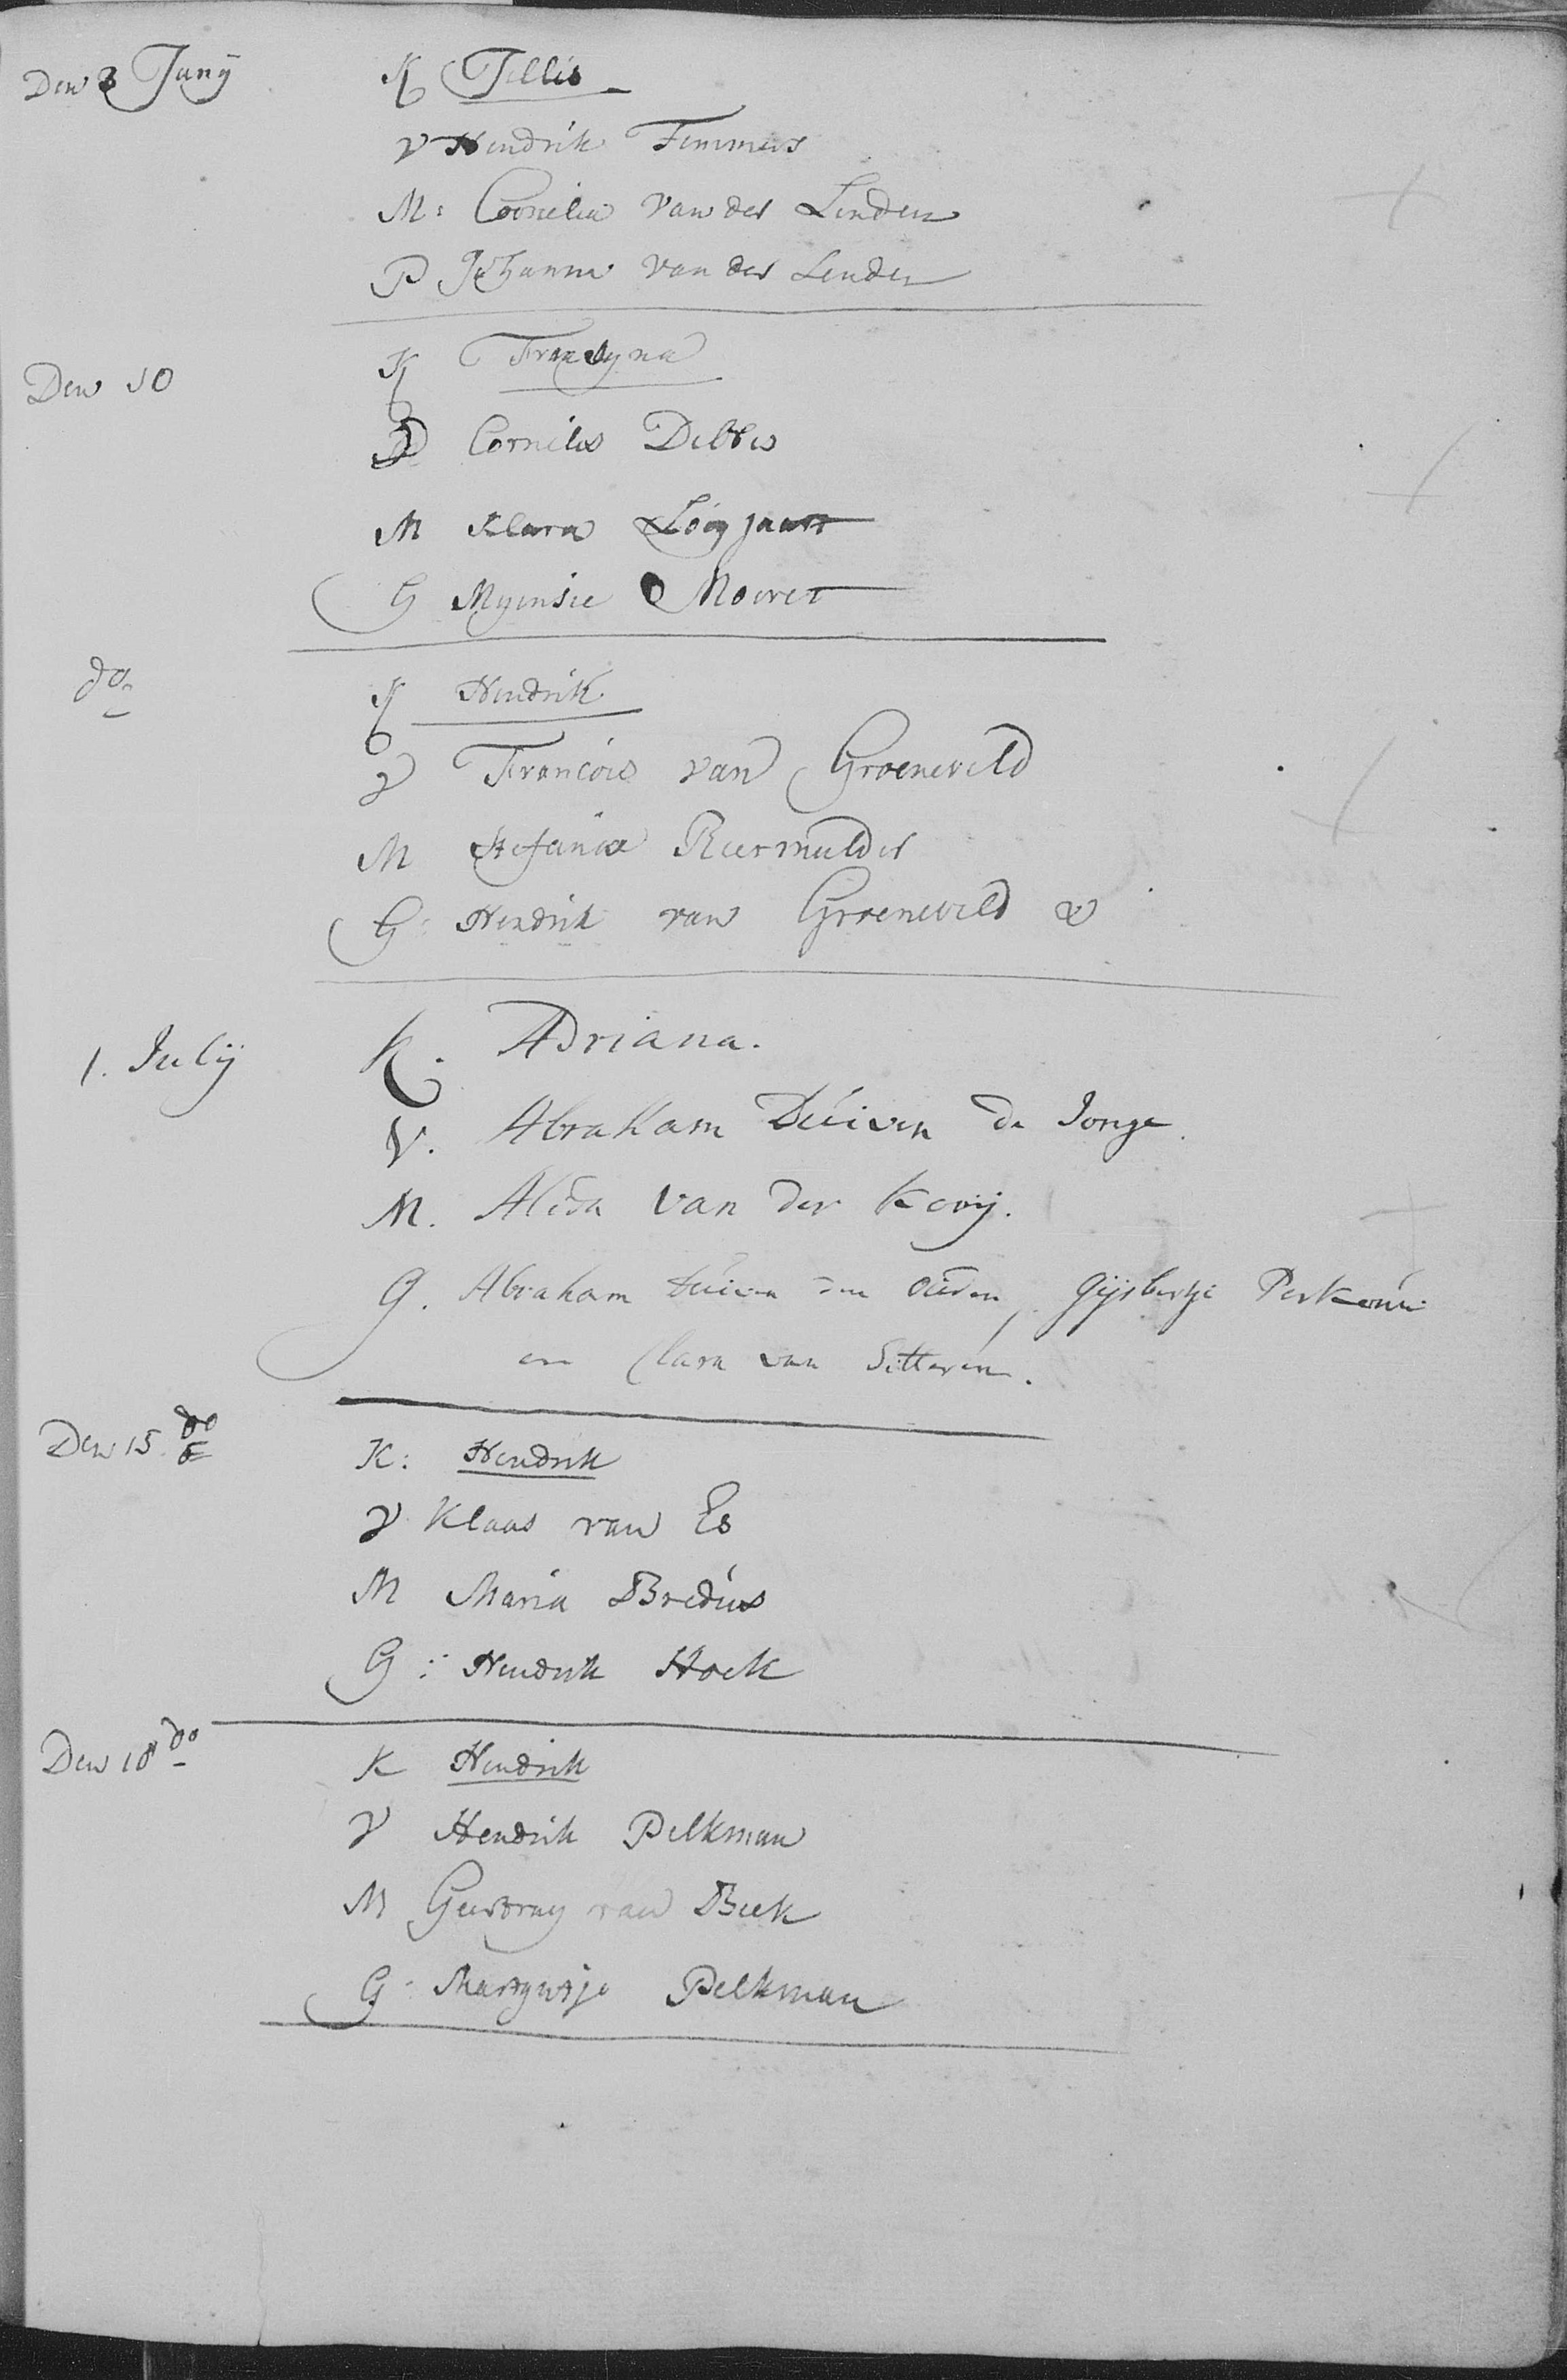 Den 3 Junij K Jillis
V Hendrik Timmers
M: Cornelia van der Linden
P Johanna van der Linden
Den 10 K Francyna
V Cornelis Dibbes
M Klara Looyjaar
G Myensie Moeret
do K Hendrik
V Francois van Groeneveld
M Stefania Reermulder
G: Hendrik van Groeneveld
1. Julij K. Adriana.
V. Abraham Duiven de Jonge.
M. Alida van der Kooij.
G. Abraham Duiven den ouden, Gijsbertje
en Clara van Sitteren.
Den 15 do K: Hendrik
V Klaas van Es
M Maria Bredius
G: Hendrik Hoek
Den 18 do K Hendrik
V Hendrik Pelkman
M Geertruy van Beek
G: Martyntje Pelkman